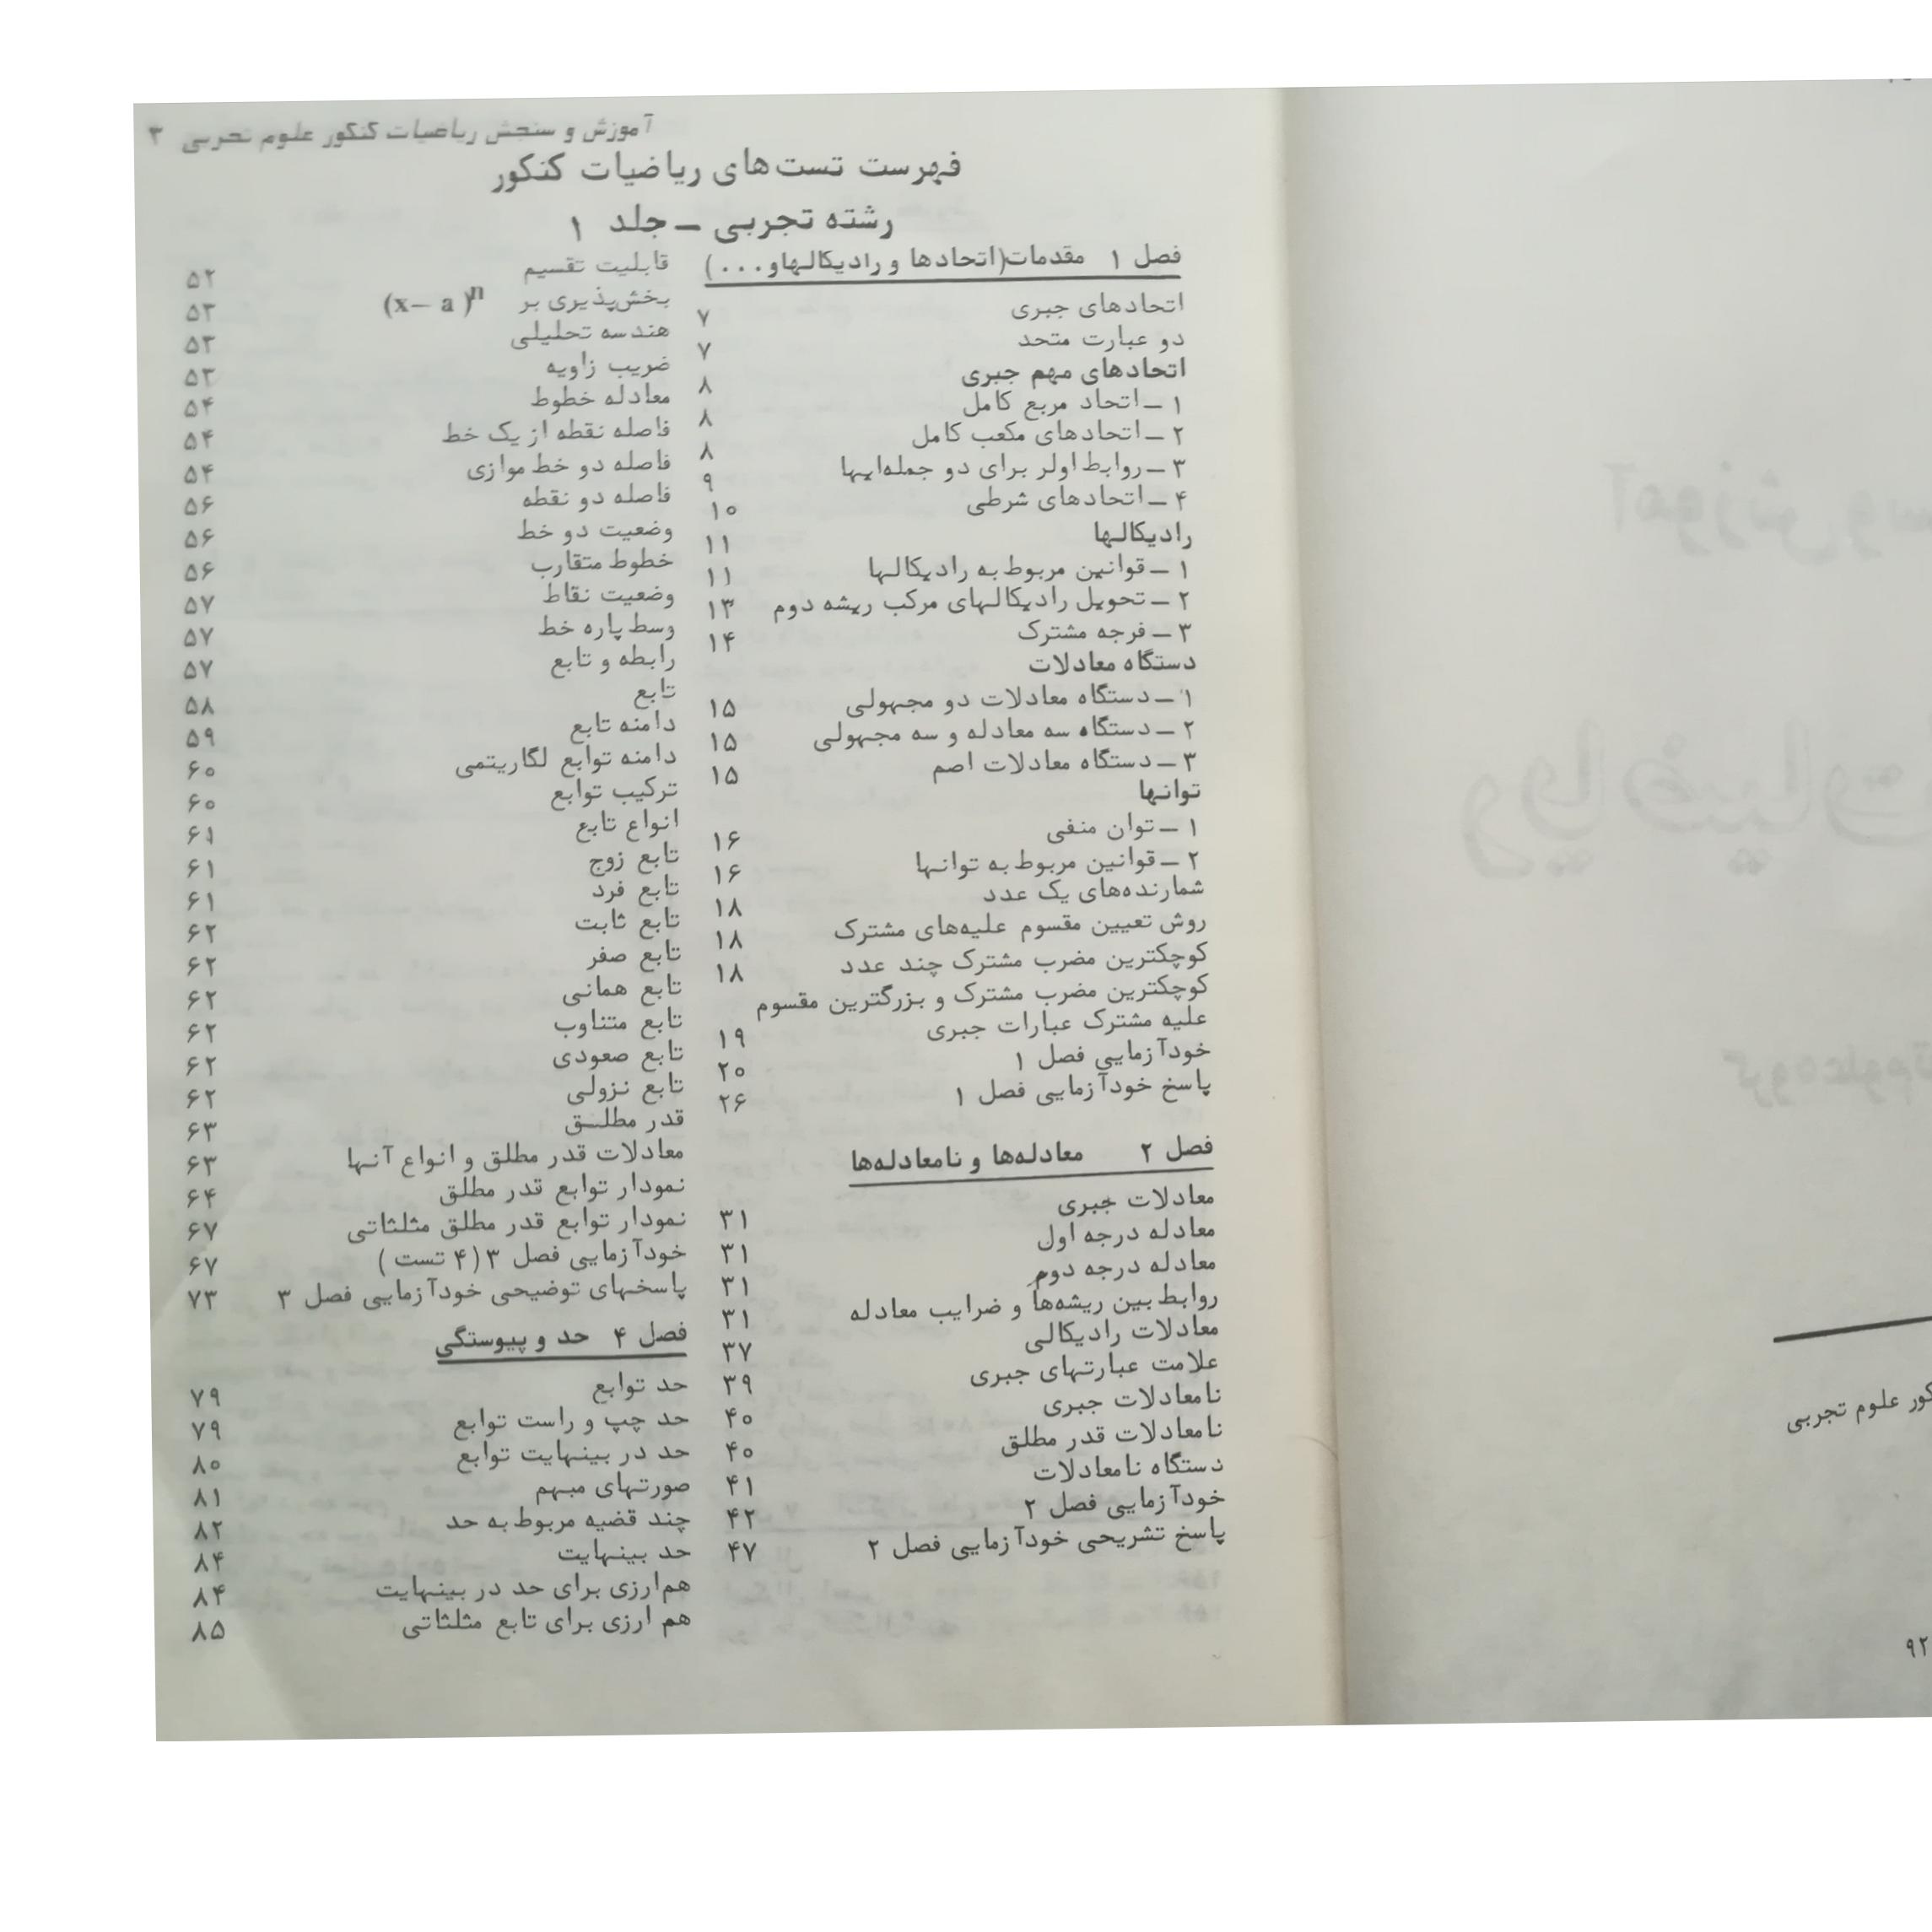 آموزش و سنجش ریاضیات کنکور علوم تجربی ۳
فهرست تست‌های ریاضیات کنکور
رشته تجربی – جلد ۱
فصل ۱ مقدمات(اتحادها و رادیکالهاو...)
اتحادهای جبری ۷
دو عبارت متحد ۷
اتحادهای مهم جبری ۸
۱ – اتحاد مربع کامل ۸
۲ – اتحادهای مکعب کامل ۸
۳ – روابط اولر برای دو جمله‌ایها ۹
۴ – اتحادهای شرطی ۱۰
رادیکالها ۱۱
۱ – قوانین مربوط به رادیکالها ۱۱
۲ – تحویل رادیکالهای مرکب ریشه دوم ۱۳
۳ – فرجه مشترک ۱۴
دستگاه معادلات
۱ – دستگاه معادلات دو مجهولی ۱۵
۲ – دستگاه سه معادله و سه مجهولی ۱۵
۳ – دستگاه معادلات اصم ۱۵
توانها
۱ – توان منفی ۱۶
۲ – قوانین مربوط به توانها ۱۶
شمارنده‌های یک عدد ۱۸
روش تعیین مقسوم علیه‌های مشترک ۱۸
کوچکترین مضرب مشترک چند عدد ۱۸
کوچکترین مضرب مشترک و بزرگترین مقسوم
علیه مشترک عبارات جبری ۱۹
خودآزمایی فصل ۱ ۲۰
پاسخ خودآزمایی فصل ۱ ۲۶
فصل ۲ معادله‌ها و نامعادله‌ها
معادلات جبری ۳۱
معادله درجه اول ۳۱
معادله درجه دوم ۳۱
روابط بین ریشه‌ها و ضرایب معادله ۳۱
معادلات رادیکالی ۳۷
علامت عبارتهای جبری ۳۹
نامعادلات جبری ۴۰
نامعادلات قدر مطلق ۴۰
دستگاه نامعادلات ۴۱
خودآزمایی فصل ۲ ۴۲
پاسخ تشریحی خودآزمایی فصل ۲ ۴۷
قابلیت تقسیم ۵۲
بخش‌پذیری بر (x– a)ⁿ ۵۳
هندسه تحلیلی ۵۳
ضریب زاویه ۵۳
معادله خطوط ۵۴
فاصله نقطه از یک خط ۵۴
فاصله دو خط موازی ۵۴
فاصله دو نقطه ۵۶
وضعیت دو خط ۵۶
خطوط متقارب ۵۶
وضعیت نقاط ۵۷
وسط پاره خط ۵۷
رابطه و تابع ۵۷
تابع ۵۸
دامنه تابع ۵۹
دامنه توابع لگاریتمی ۶۰
ترکیب توابع ۶۰
انواع تابع ۶۱
تابع زوج ۶۱
تابع فرد ۶۱
تابع ثابت ۶۲
تابع صفر ۶۲
تابع همانی ۶۲
تابع متناوب ۶۲
تابع صعودی ۶۲
تابع نزولی ۶۲
قدر مطلق ۶۳
معادلات قدر مطلق و انواع آنها ۶۳
نمودار توابع قدر مطلق ۶۴
نمودار توابع قدر مطلق مثلثاتی ۶۷
خودآزمایی فصل ۳ (۴ تست) ۶۷
پاسخهای توضیحی خودآزمایی فصل ۳ ۷۳
فصل ۴ حد و پیوستگی
حد توابع ۷۹
حد چپ و راست توابع ۷۹
حد در بینهایت توابع ۸۰
صورتهای مبهم ۸۱
چند قضیه مربوط به حد ۸۲
حد بینهایت ۸۴
هم‌ارزی برای حد در بینهایت ۸۴
هم ارزی برای تابع مثلثاتی ۸۵
علوم تجربی
۹۲